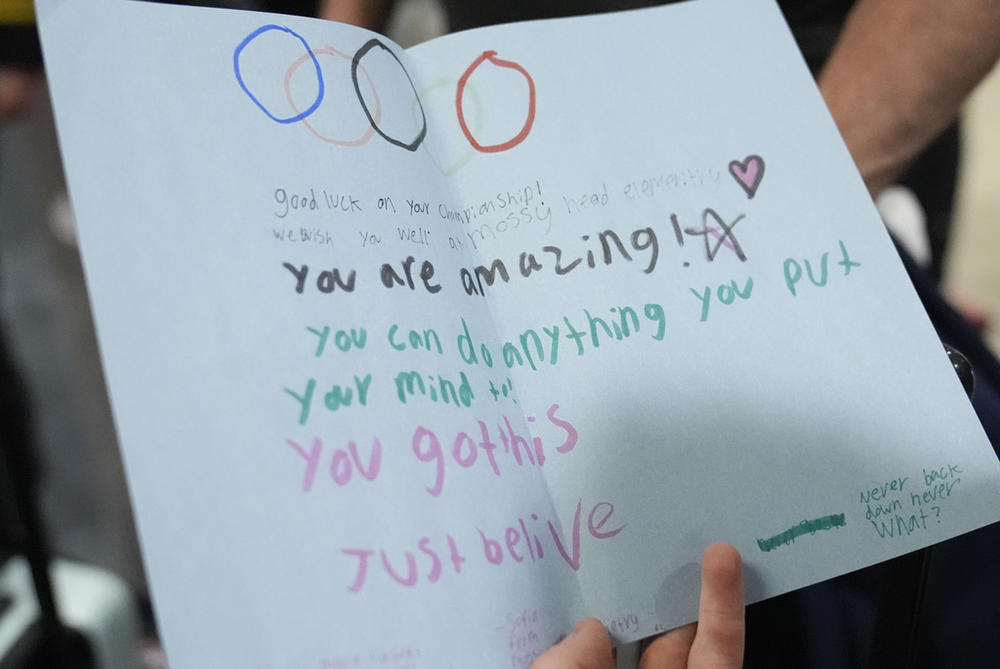 good luck on your championship!
we wish you well at mossy head elementry
you are amazing!
you can do anything you put
your mind to!
you got this
Just belive
Never back
down never
What?
Sofia
from